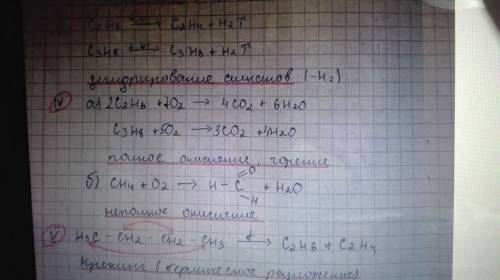 C2H6 → C2H4 + H2↑
C3H8 → C3H6 + H2↑
дегидрирование алкенов (-H2)
IV а) 2C2H6 + 7O2 → 4CO2 + 6H2O
C3H8 + 5O2 → 3CO2 + 4H2O
полное окисление, горение
б) CH4 + O2 → H - C =O H + H2O
неполное окисление
V H3C - CH2 - CH2 - CH3 → C2H6 + C2H4
Крекинг (термическое разложение)